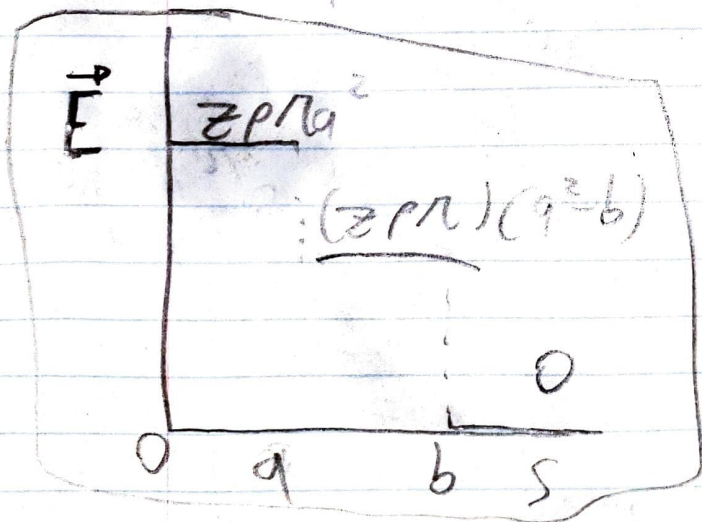 E⃗
zρπa²
(zρπ)(a²-b)
0
0 a b s